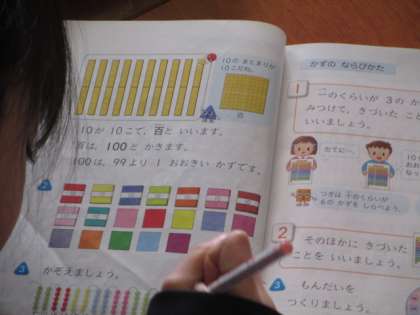 10の まとまりが
10こだね。
百
10が 10こで、百と いいます。
百は、100と かきます。
100は、99より 1 おおきい かずです。
2
3
かぞえましょう。
かずの ならびかた
1
一のくらいが 3の か
みつけて、きづいた こと
いいましょう。
たてに
10
つぎは 十のくらいが
6の かずを しらべよう。
2
そのほかに きづいた
ことを いいましょう。
3
もんだいを
つくりましょう。